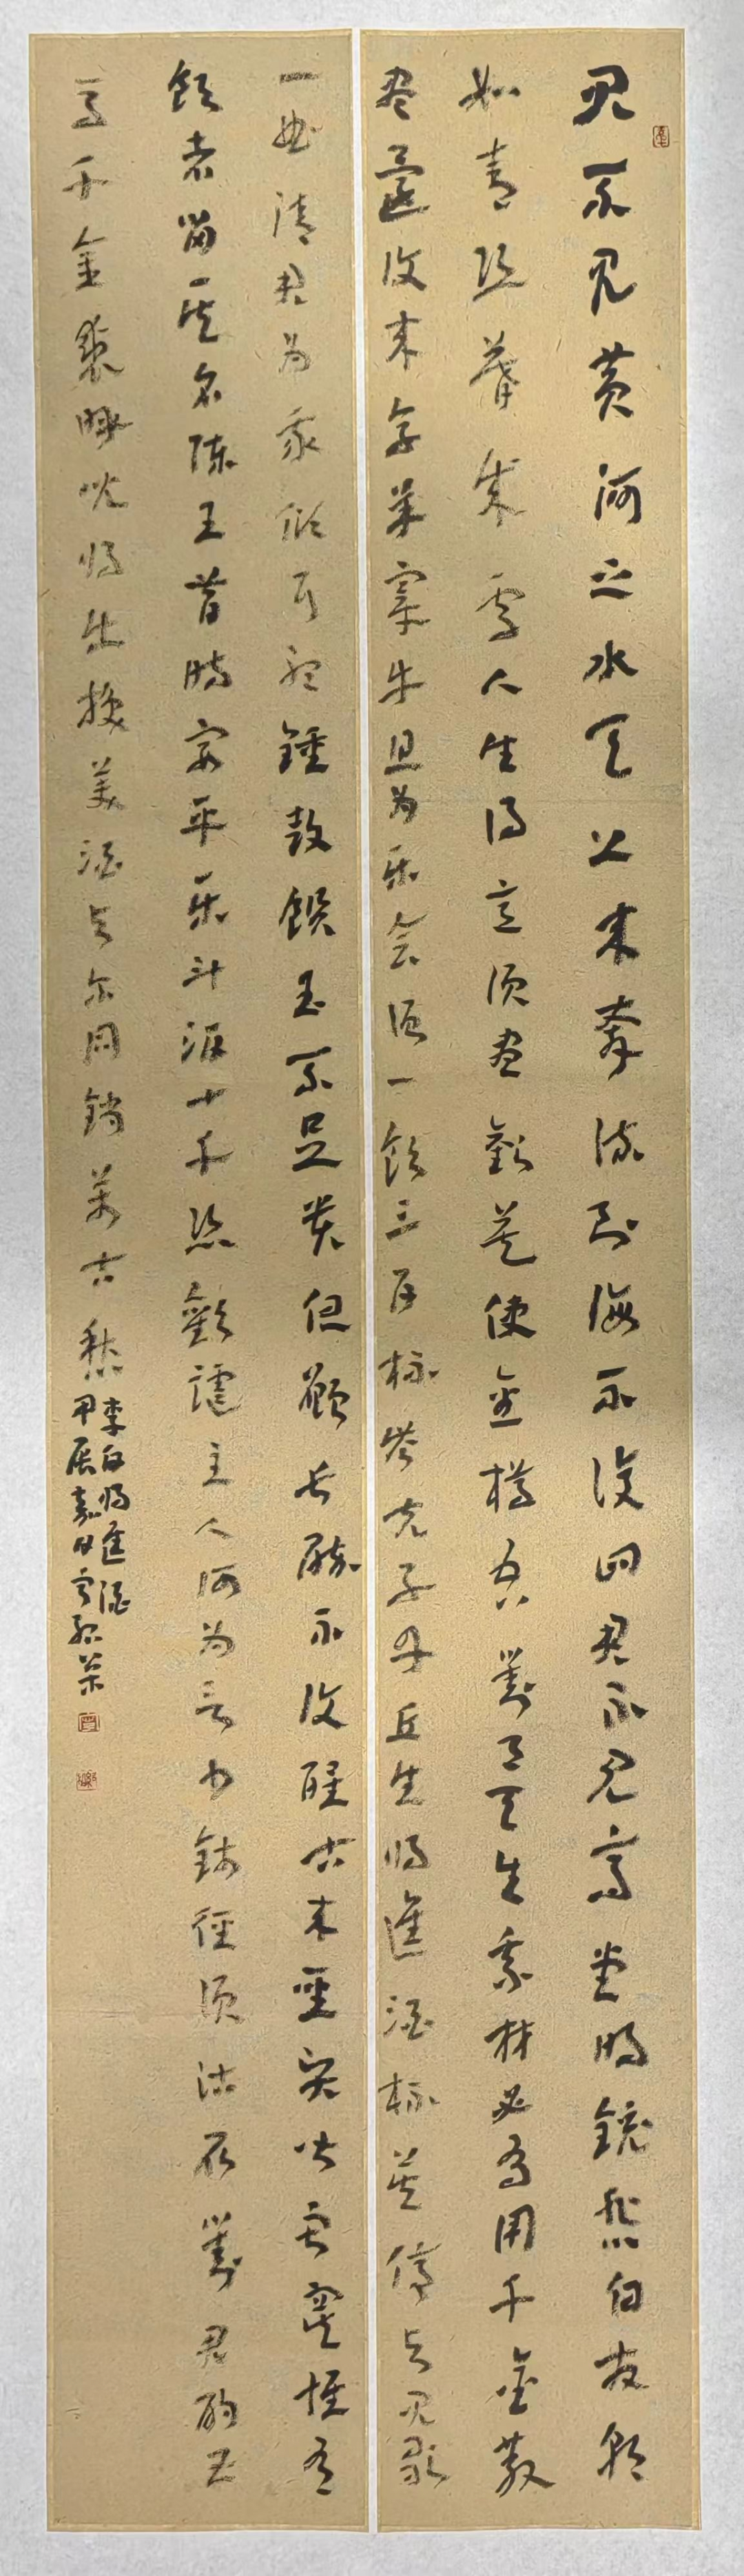 君不见黄河之水天上来奔流到海不復回君不见高堂明镜悲白发朝
如青丝暮成雪人生得意须尽歡莫使金樽空對月天生我材必有用千金散
尽還復来烹羊宰牛且为乐会须一饮三百杯岑夫子丹丘生将進酒杯莫停与君歌
一曲请君为我倾耳听鍾鼓饌玉不足贵但願长醉不復醒古来聖贤皆寂寞惟有
饮者留其名陈王昔时宴平乐斗酒十千恣歡謔主人何为言少钱径须沽取對君酌五
马千金裘呼儿将出换美酒与尔同销万古愁
李白将進酒
甲辰嘉月